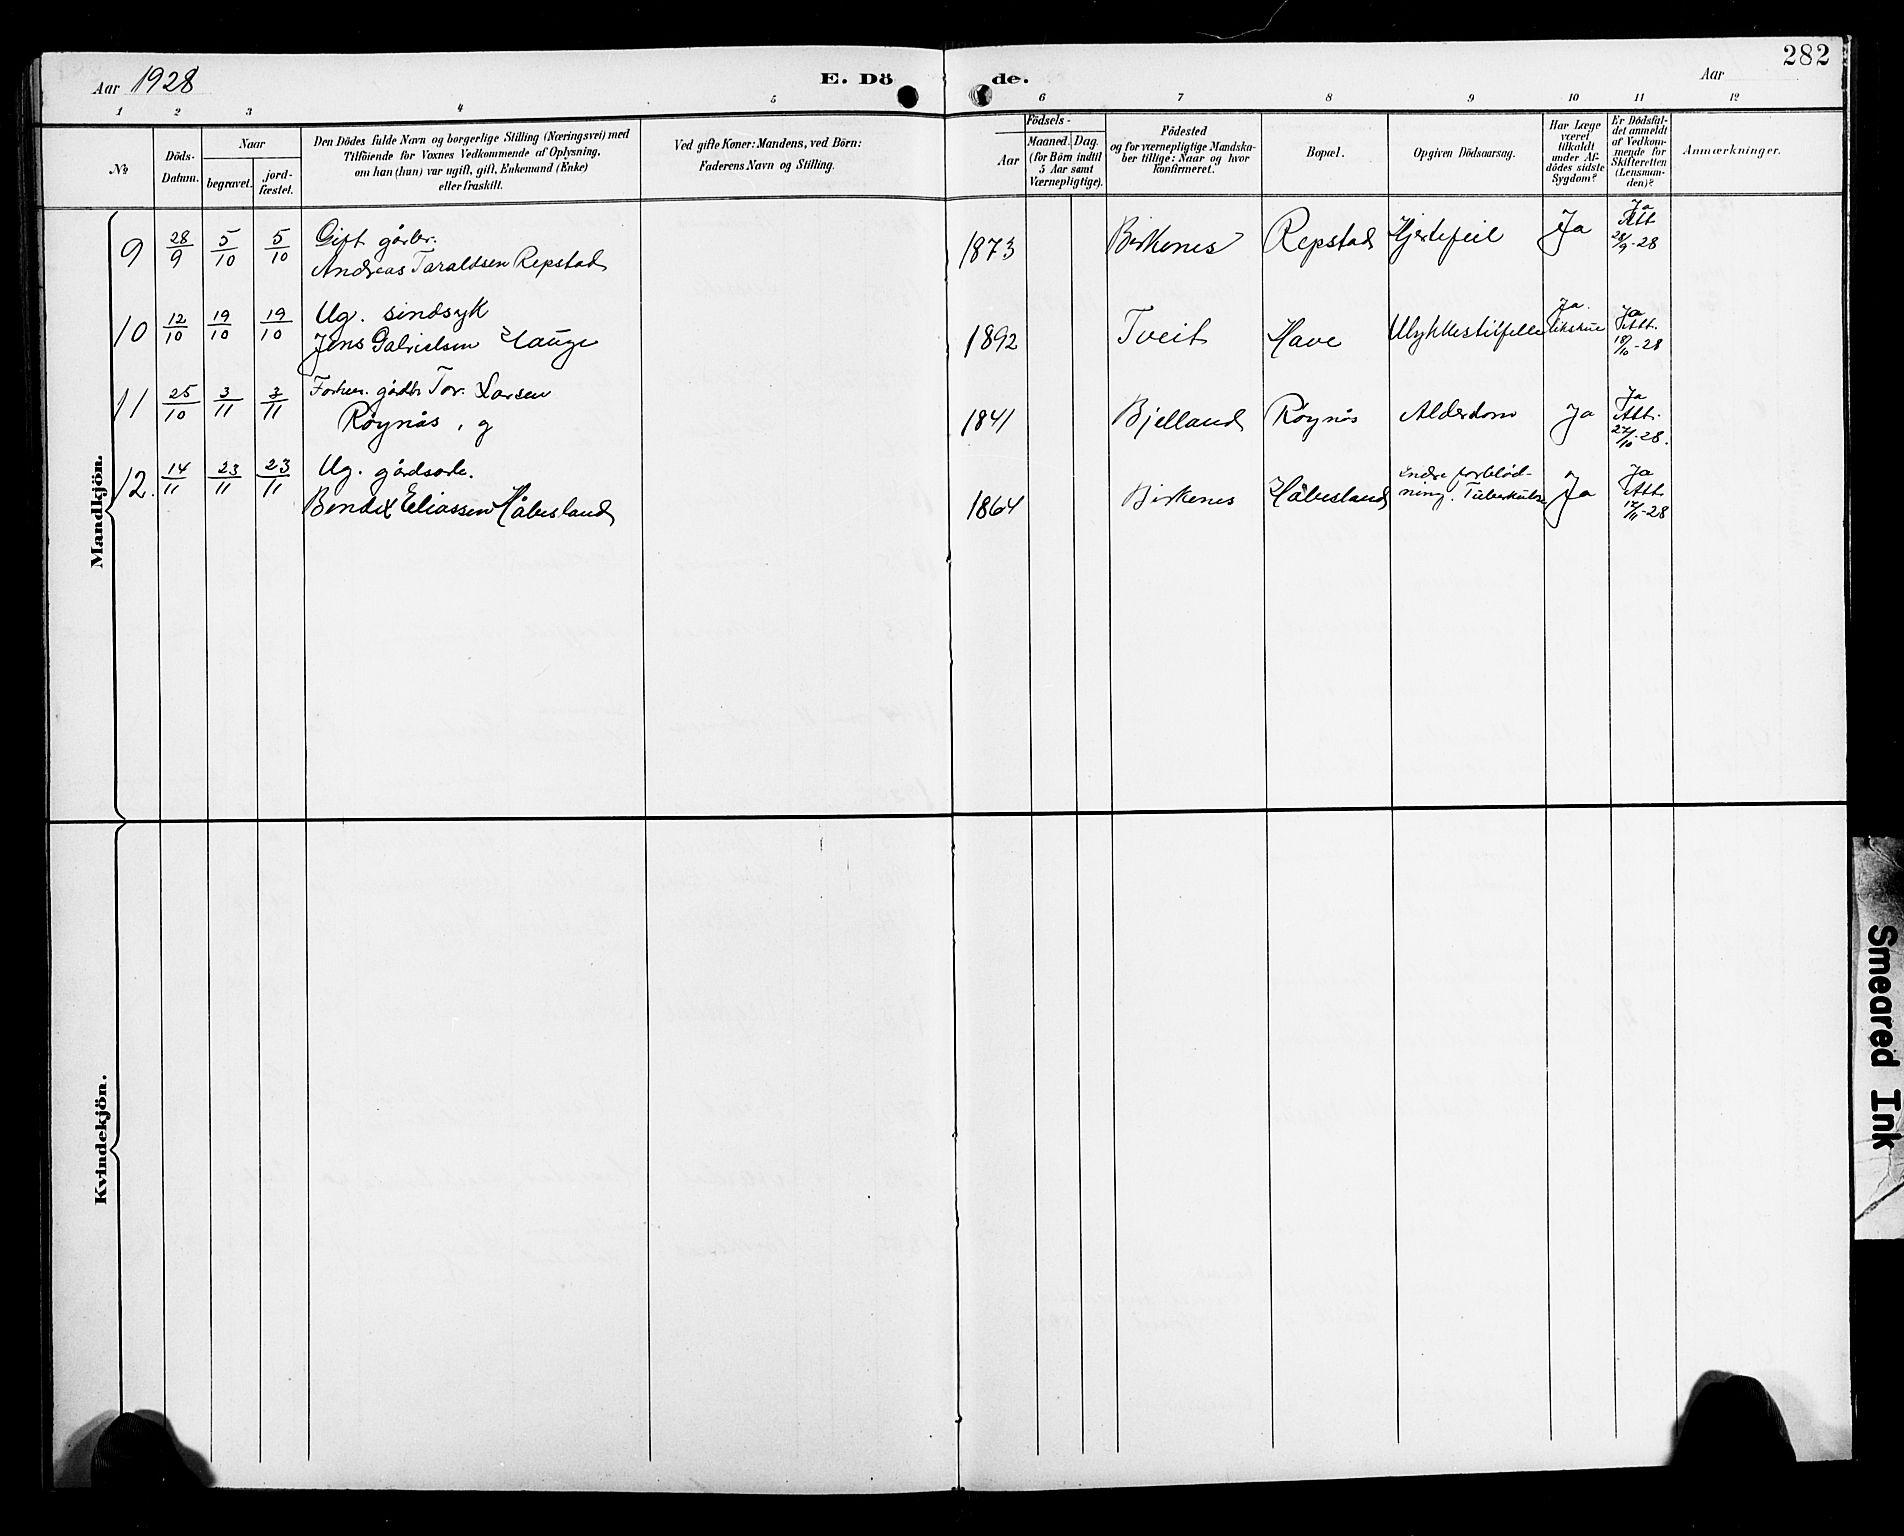 282
Aar 1928
E. Dö de.
Aar
1 2 3 4 5 6 7 8 9 10 11 12
No
Döds-
Datum.
Naar
begravet.
jord-
fæstet.
Den Dödes fulde Navn og borgerlige Stilling (Næringsvei) med
Tilföiende for Voxnes Vedkommende af Oplysning,
om han (hun) var ugift, gift, Enkemand (Enke)
eller fraskilt.
Ved gifte Koner: Mandens, ved Börn:
Faderens Navn og Stilling.
Födsels-
Aar
Maaned. Dag.
(for Börn indtil
5 Aar samt
Værnepligtige).
Födested
og for værnepligtige Mandska-
ber tillige: Naar og hvor
konfirmeret.
Bopæl.
Opgiven Dödsaarsag.
Har Læge
været
tilkaldt
under Af-
dödes sidste
Sygdom?
Er Dödsfal-
det anmeldt
af Vedkom-
mende for
Skifteretten
(Lensman-
den)?
Anmærkninger.
Mandkjön.
9 28/9 5/10 5/10 Gift gårbr.
Andreas Taraldsen Repstad
1873 Birkenes Repstad Hjertefeil Ja Ja
Att
28/9-28
10 12/10 19/10 19/10 Ug. sindsyk
Jens Gabrielsen Hauge
1892 Tveit Have Ulykkestilfelle Ja.
likskue
Ja
Att.
18/10-28
11 25/10 3/11 3/11 Forhen. gårdbr. Tor. Larsen
Røynås, g
1841 Bjelland Røynås Alderdom Ja Ja
Att.
27/10-28.
12. 14/11 23/11 23/11 Ug. gårdsarb.
Bendix Eliassen Håbesland
1864 Birkenes Håbesland Indre forblød-
ning. Tuberkulose Ja Ja
Att
17/11-28
Kvindekjön.
Smeared Ink